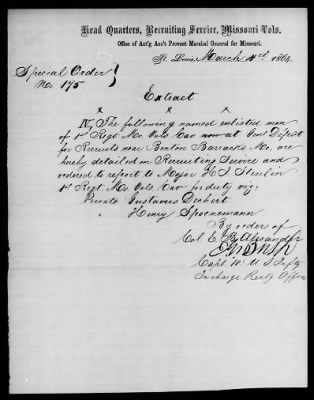 Head Quarters, Recruiting Service, Missouri Vols.
Office of Act'g Ass't Provost Marshal General for Missouri.
St. Louis, March 4th, 1864.
Special Order
No. 175
Extract
x x x
IV The following named enlisted men
of 1st Regt Mo. Vols Cav now at Gen'l Depot
for Recruits near Benton Barracks Mo, are
hereby detailed on Recruiting Service and
ordered to report to Major H J Stierlin
1st Regt Mo. Vols Cav for duty viz;
Private Gustavus Deubert
" Henry Spornemann
By order of
Col. E. B. Alexander
Capt. 10" U S Infty
In charge Recty Office